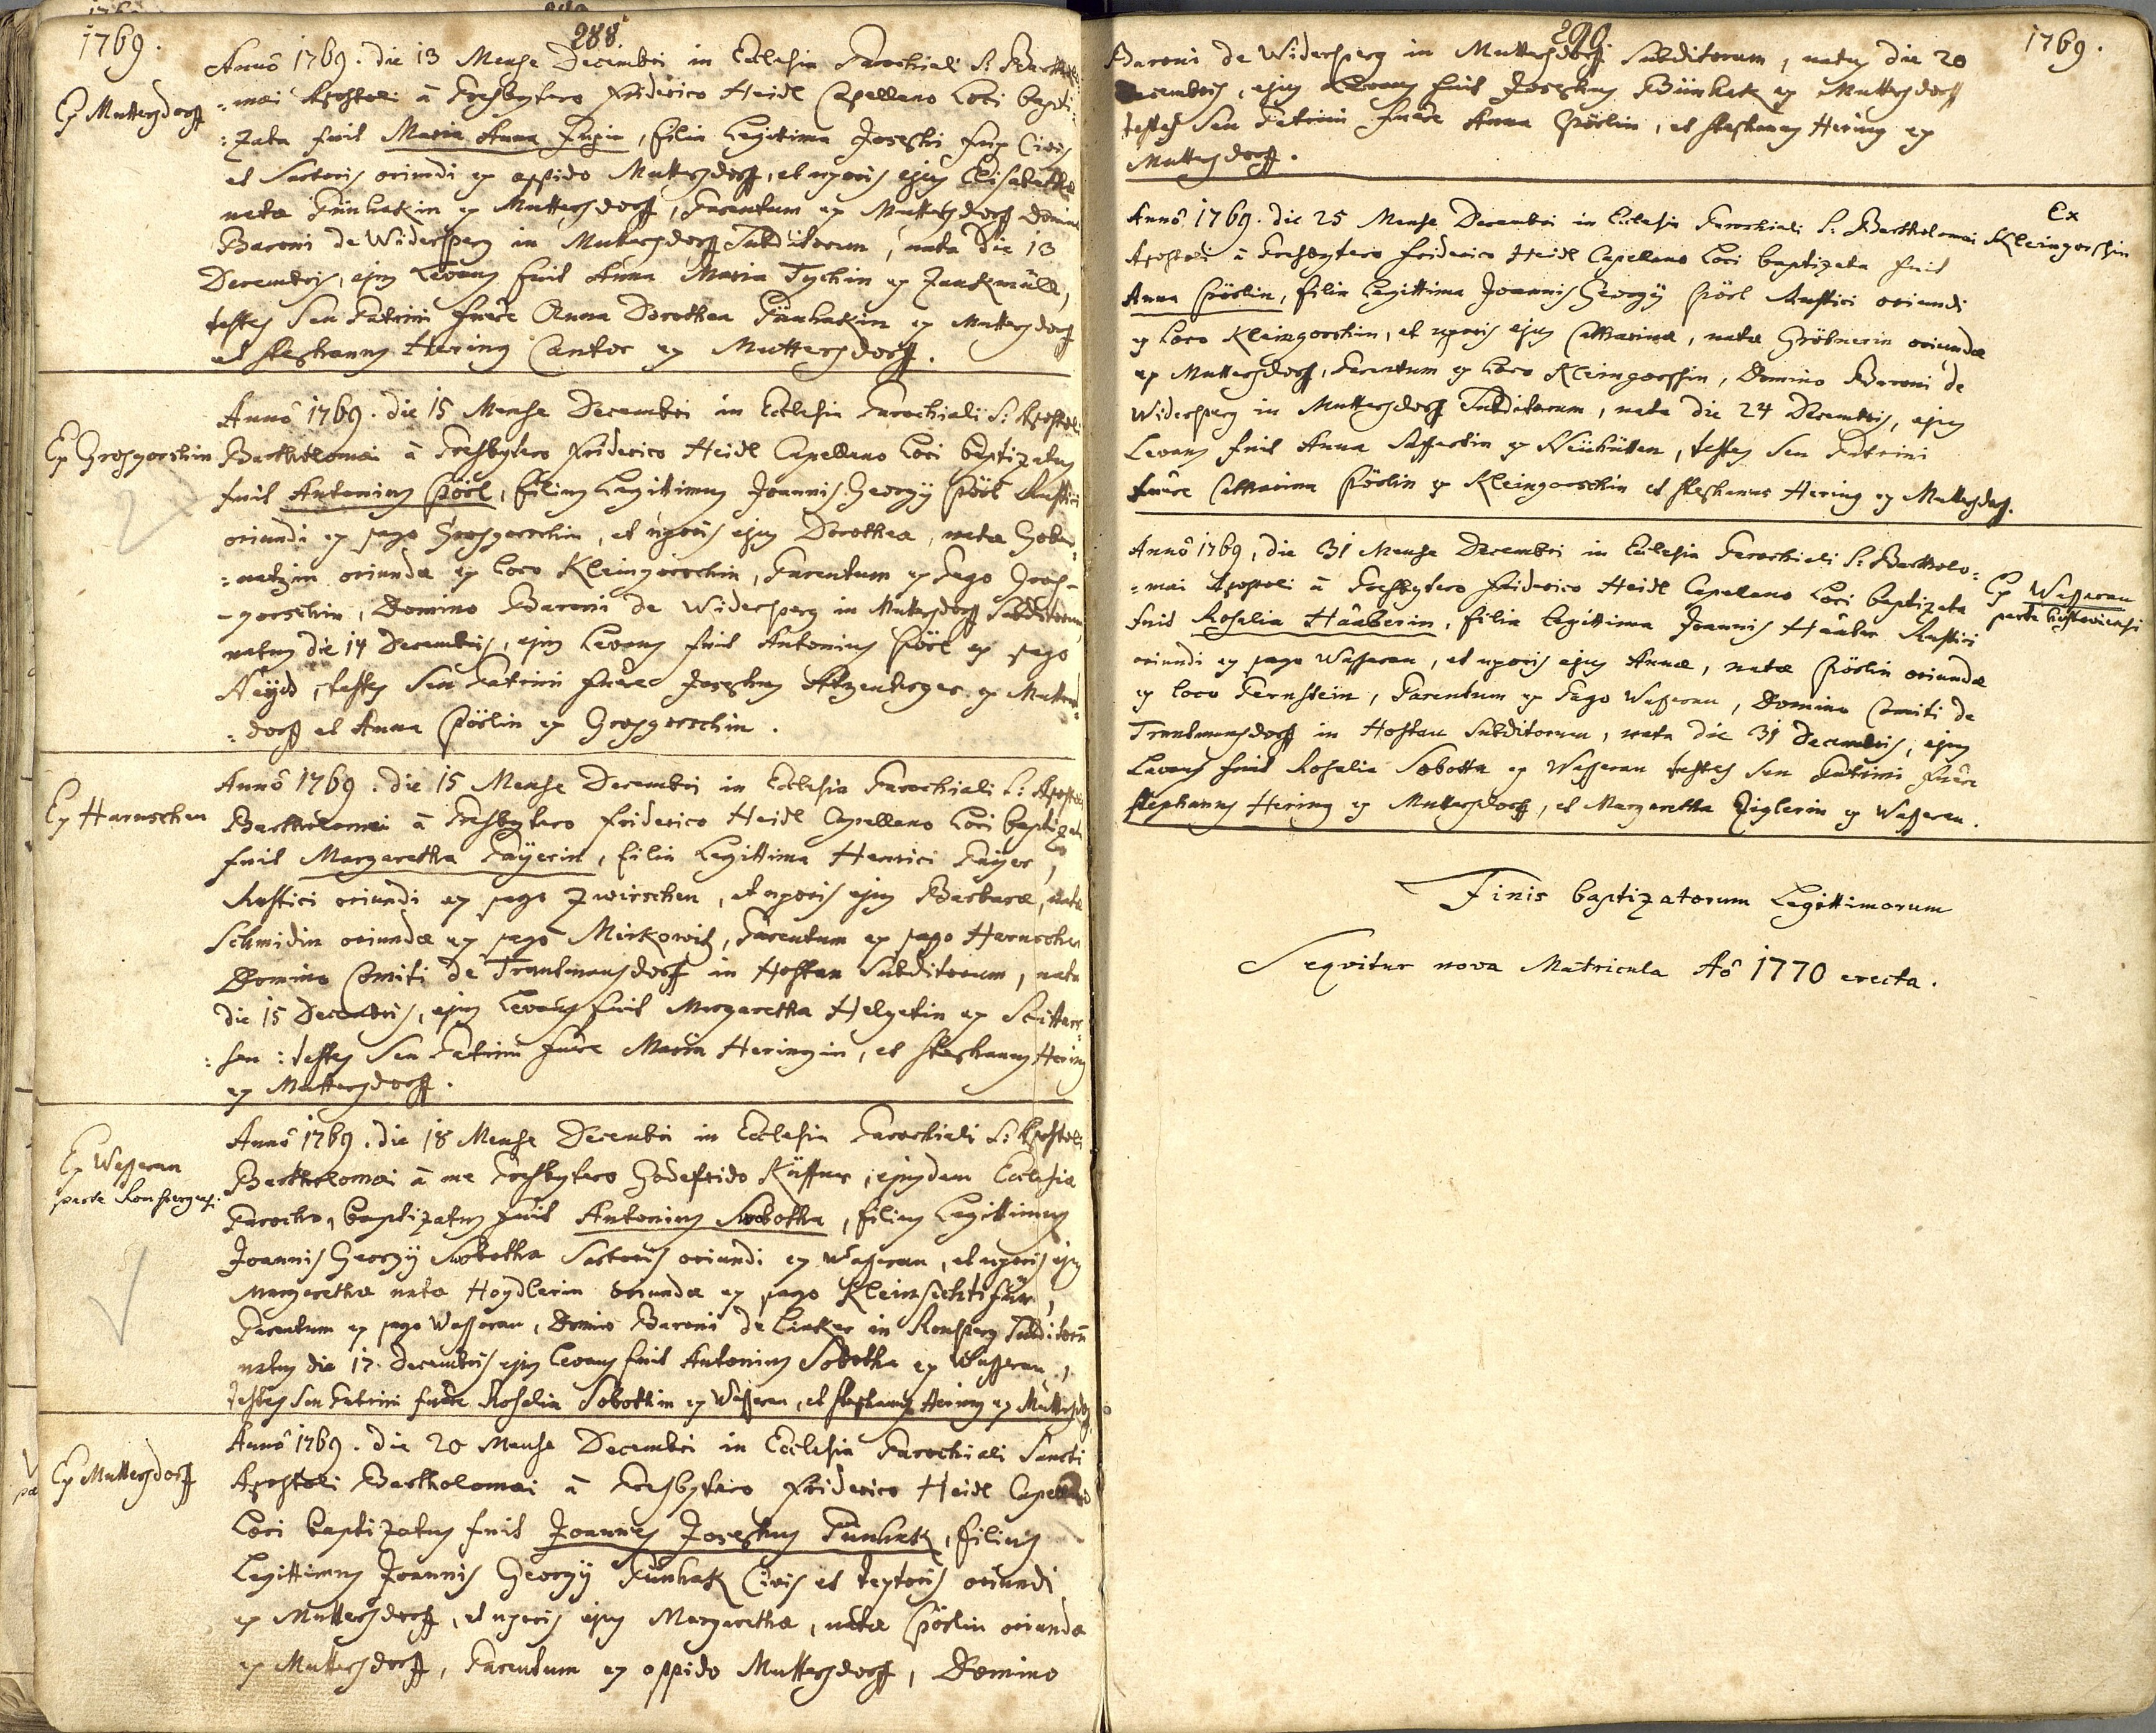 1769.
288.
Ex Muttersdorff
Anno 1769. die 13 Mense Decembri in Ecclesia Parochiali S: Bartholo=
=mæi Apostoli â Presbytero Friderico Heidl Capellano Loci bapti=
=zata fuit Maria Anna, filia Legitima Josephi Civis
et Sartoris oriundi ex oppido Muttersdorff, et uxoris ejus Elisabethæ
natæ Pünhakin ex Muttersdorff, Parentum ex Muttersdorff Domino
Baroni de Widersperg in Muttersdorff Subditorum, nata die 13
Decembris, ejus Levans fuit Anna Maria Tychin ex
testes seu Patrini fuêre Anna Dorothea Pünhakin ex Muttersdorff
et Stephanus Hering Cantor ex Muttersdorff.
Ex Grosgorschin
Anno 1769. die 15 Mense Decembri in Ecclesia Parochiali S: Apostoli
Bartholomæi â Presbytero Friderico Heidl Capellano Loci baptizatus
fuit Antonius Pösl, filius Legittimus Joannis Georgÿ Pösl Rustici
oriundi ex pago Grosgorschin, et uxoris ejus Dorotheæ, natæ
oriundæ ex loco Kleingorschin, Parentum ex Pago Gros=
=gorschin, Domino Baroni de Widersperg in Muttersdorff Subditorum,
natus die 14 Decembris, ejus Levans fuit Antonius Pösl ex pago
testes seu Patrini fuêre Josephus ex Mutters=
=dorff et Anna Pöslin ex Grosgorschin.
Ex Haruschen
Anno 1769. die 15 Mense Decembri in Ecclesia Parochiali S: Apostoli
Bartholomæi â Presbytero Friderico Heidl Capellano Loci baptizata
fuit Margaretha Paÿerin, filia Legittima Henrici Paÿer,
Rustici oriundi ex pago Zwirschen, et uxoris ejus Barbaræ, natæ
Schmidin oriundæ ex pago Mirkowitz, Parentum ex pago Haruschen
Domino Comiti de Trautmansdorff in Hostau Subditorum, nata
die 15 Decembris, ejus Levans fuit Margaretha ex
testes seu Patrini fuêre Maria Heringin, et Stephanus Hering
ex Muttersdorff.
Ex Wasserau
parte Ronspergens.
Anno 1769. die 18 Mense Decembri in Ecclesia Parochiali S: Apostoli
Bartholomæi â me Presbytero Godefrido Küffner, ejusdem Ecclesiæ
Parocho, baptizatus fuit Antonius Sobotka, filius Legittimus
Joannis Georgÿ Sobotka Sartoris oriundi ex Wasserau, et uxoris ejus
Margarethæ natæ Hoydlerin oriundæ ex pago
Parentum ex pago Wasserau, Domino Baroni de Linker in Ronsperg Subditorum
natus die 17. Decembris ejus Levans fuit Antonius Sobotka ex Wasserau,
testes seu Patrini fuêre Rosalia Sobotkin ex Wasserau, et Stephanus Hering ex Muttersdorff
Ex Muttersdorff
Anno 1769. die 20 Mense Decembri in Ecclesia Parochiali Sancti
Apostoli Bartholomæi â Presbytero Friderico Heidl Capellano
Loci baptizatus fuit Joannes Josephus Pünhak, filius
Legittimus Joannis Georgÿ Pünhak Civis et textoris oriundi
ex Muttersdorff, et uxoris ejus Margarethæ, natæ Pöslin oriundæ
ex Muttersdorff, Parentum ex oppido Muttersdorff, Domino
1769.
Baroni de Widersperg in Muttersdorff Subditorum, natus die 20
Decembris, ejus Levans fuit Josephus Pünhak ex Muttersdorff
testes seu Patrini fuêre Anna Pöslin, et Stephanus Hering ex
Muttersdorff.
Ex
Kleingorschin
Anno 1769. die 25 Mense Decembri in Ecclesia Parochiali S: Bartholomæi
Apostoli â Presbytero Friderico Heidl Capellano Loci baptizata fuit
Anna Pöslin, filia Legittima Joannis Georgÿ Pösl Rustici oriundi
ex loco Kleingorschin, et uxoris ejus Catharinæ, natæ Gröbnerin oriundæ
ex Muttersdorff, Parentum ex loco Kleingorschin, Domino Baroni de
Widersperg in Muttersdorff Subditorum, nata die 24 Decembris, ejus
Levans fuit Anna ex Neuhütten, testes seu Patrini
fuêre Catharina Pöslin ex Kleingorschin et Stephanus Hering ex Muttersdorff.
Ex Wasserau
parte
Anno 1769, die 31 Mense Decembri in Ecclesia Parochiali S: Bartholo=
=mæi Apostoli â Presbytero Friderico Heidl Capellano Loci baptizata
fuit Rosalia Haaberin, filia Legittima Joannis Haaber Rustici
oriundi ex pago Wasserau, et uxoris ejus Annæ, natæ Pöslin oriundæ
ex loco Pernstein, Parentum ex Pago Wasserau, Domino Comiti de
Trautmansdorff in Hostau Subditorum, nata die 31 Decembris, ejus
Levans fuit Rosalia Sobotka ex Wasserau testes seu Patrini fuêre
Stephanus Hering ex Muttersdorff, et Margaretha Ziglerin ex Wasserau.
Finis baptizatorum Legittimorum
Seqvitur nova Matricula Aô 1770 erecta.